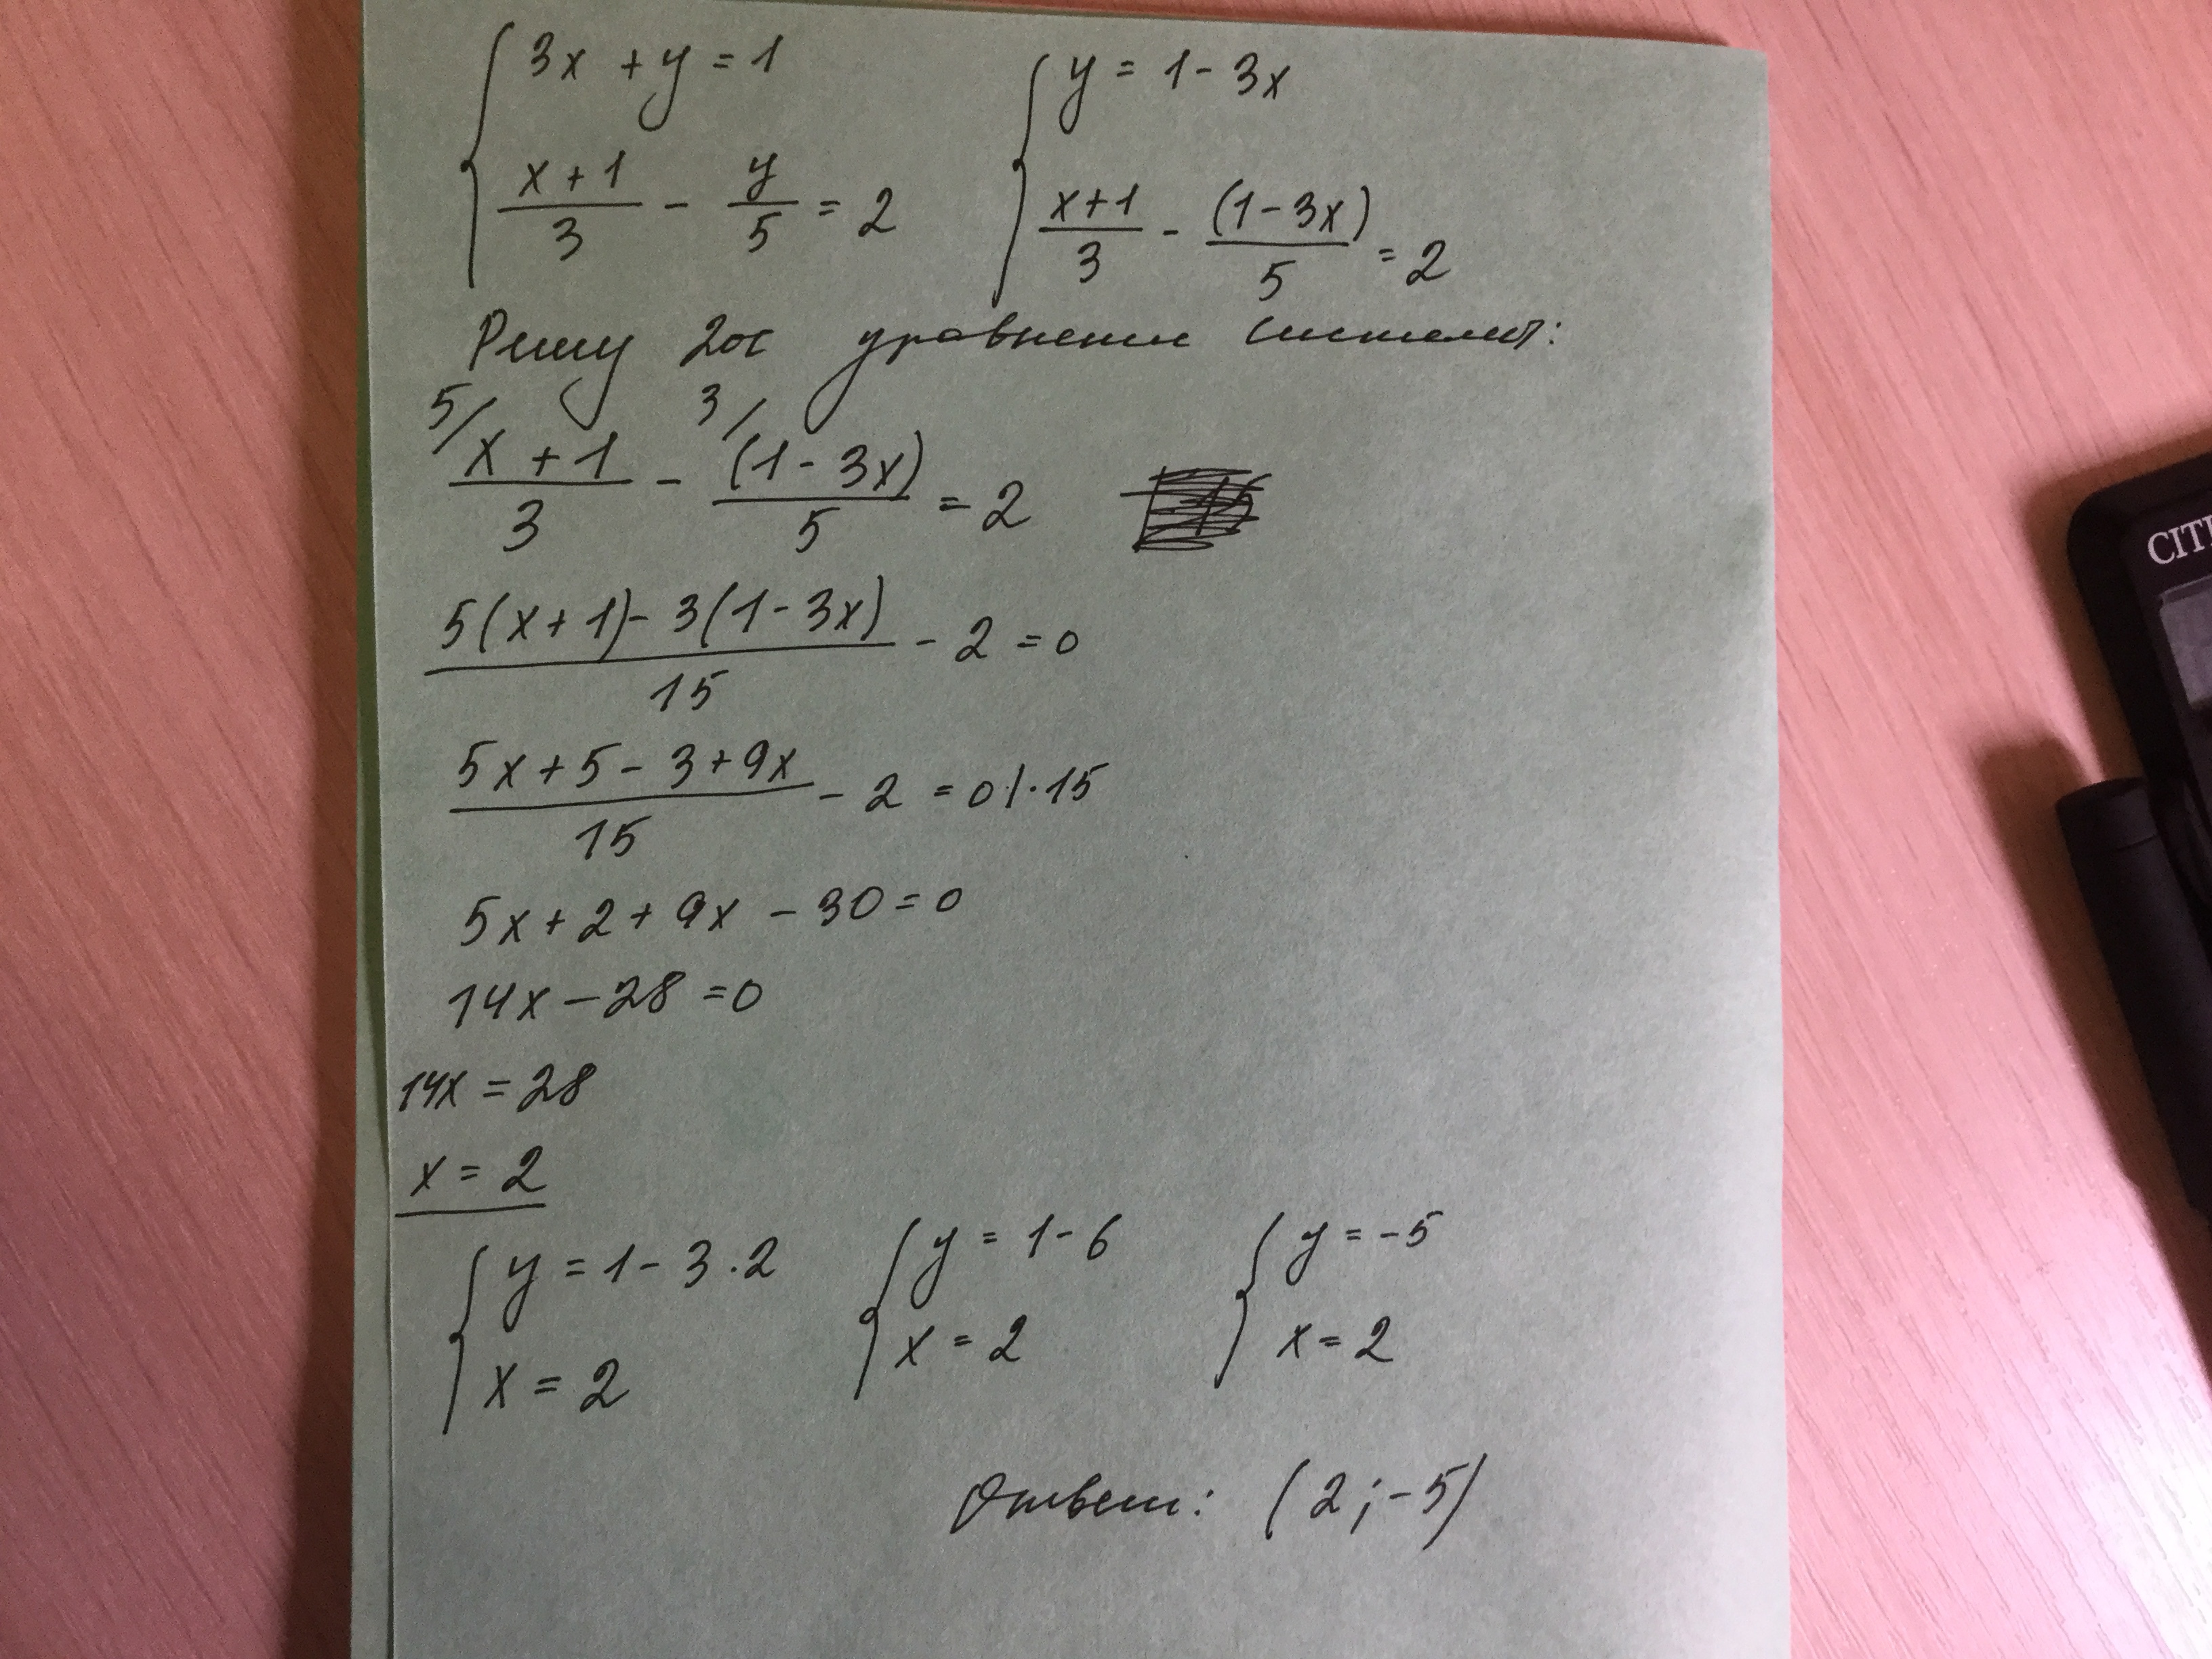 { 3x + y = 1 { y = 1 - 3x
(x + 1)/3 - y/5 = 2 (x+1)/3 - (1 - 3x)/5 = 2
Решу 2ое уравнение системы:
5/ 3/
(x + 1)/3 - (1 - 3x)/5 = 2
(5(x + 1) - 3(1 - 3x))/15 - 2 = 0
(5x + 5 - 3 + 9x)/15 - 2 = 0 | · 15
5x + 2 + 9x - 30 = 0
14x - 28 = 0
14x = 28
x = 2
{ y = 1 - 3 · 2 { y = 1 - 6 { y = -5
x = 2 x = 2 x = 2
Ответ: (2; -5)
CITI